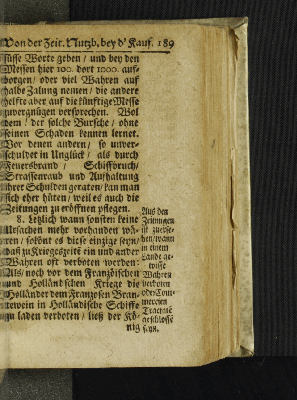 Von der Zeit. Nutzb. bey d' Kauf. 189
süsse Worte geben / und bey den
Messen hier 100. dort 1000. auf-
borgen / oder viel Wahren auf
halbe Zalung nemen / die andere
helfte aber auf die künftige Messe
zuvergnügen versprechen. Wol
dem / der solche Bursche / ohne
seinen Schaden kennen lernet.
Vor denen andern / so unver-
schuldet in Unglück / als durch
Feuersbrand / Schiffbruch /
Strassenraub und Aufhaltung
ihrer Schulden geraten / kan man
sich eher hüten / weil es auch die
Zeitungen zu eröffnen pflegen.
8. Letzlich wann sonsten keine
Ursachen mehr vorhanden wä-
ren / so könt es diese einzige seyn /
daß zu Kriegeszeite ein und ander
Wahren oft verboten werden:
Als / noch vor dem Französischen
und Holländschen Kriege die
Holländer dem Franzosen Bran-
tewein in Holländische Schiffe
zu laden verboten / ließ der Kö-
nig
Aus den
Zeitungen
ist zuerse-
hen / wann
in einem
Lande ge-
wisse
Wahren
verboten
oder Com-
mercien
Tractaté
geschlossé
seyn.